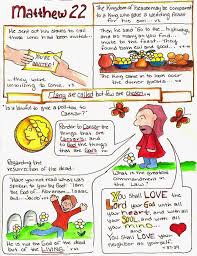 Matthew 22
The Kingdom of Heaven may be compared
to a King who gave a wedding feast
for his son...
He sent out his slaves to call
those who had been invited...
Then he said "Go to the... highways,
and as many as you find
invite to the... Feast." They
found both evil and good...
... they were
unwilling to come.
The King came in to look over
the dinner guests...
Many are called but few are chosen
Is it lawful to give a poll-tax to
Caesar?
Render to Caesar the
things that are
Caesar's; and
to God the things
that are God's.
Regarding the
resurrection of the dead:
Have you not read what was
spoken to you by God: "I am
the God of... Abraham... Isaac...
Jacob"
He is not the God of the dead
but of the LIVING.
which is the greatest
commandment in
the Law?
You shall LOVE the
Lord your God with all
your heart, and with all
your SOUL and with all
your mind...
and You shall LOVE your
neighbor as yourself.